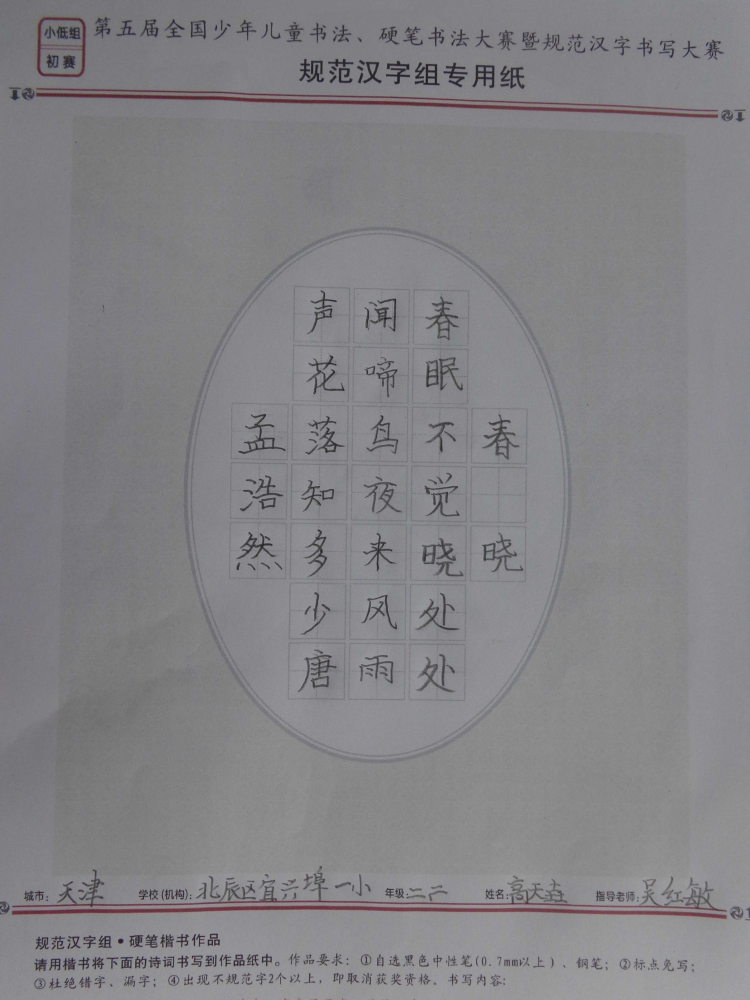 小低组
初赛
第五届全国少年儿童书法、硬笔书法大赛暨规范汉字书写大赛
规范汉字组专用纸
春晓
春眠不觉晓处处
闻啼鸟夜来风雨
声花落知多少唐
孟浩然
城市：天津 学校(机构)：北辰区宜兴埠一小 年级：二二 姓名：高天 指导老师：吴红敏
规范汉字组·硬笔楷书作品
请用楷书将下面的诗词书写到作品纸中。作品要求：①自选黑色中性笔(0.7mm以上)、钢笔；②标点免写；
③杜绝错字、漏字；④出现不规范字2个以上，即取消获奖资格。书写内容：